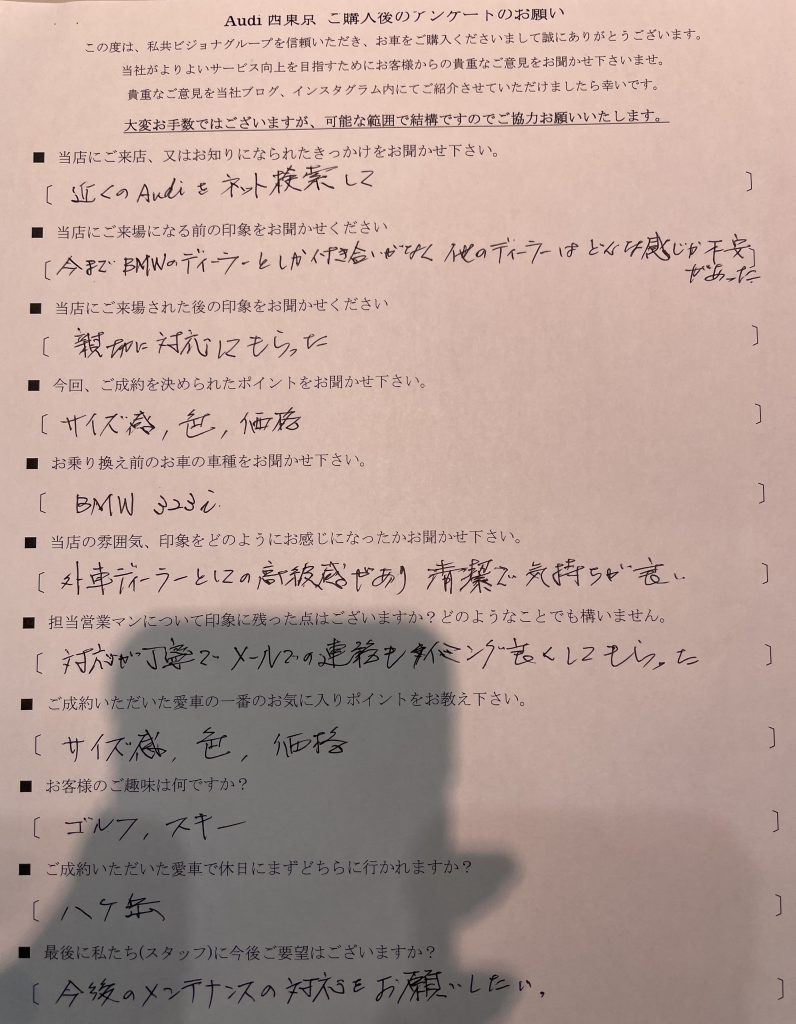 Audi 西東京 ご購入後のアンケートのお願い
この度は、私共ビジョナグループを信頼いただき、お車をご購入くださいまして誠にありがとうございます。
当社がよりよいサービス向上を目指すためにお客様からの貴重なご意見をお聞かせ下さいませ。
貴重なご意見を当社ブログ、インスタグラム内にてご紹介させていただけましたら幸いです。
大変お手数ではございますが、可能な範囲で結構ですのでご協力お願いいたします。
■ 当店にご来店、又はお知りになられたきっかけをお聞かせ下さい。
[ 近くのAudiをネット検索して ]
■ 当店にご来場になる前の印象をお聞かせください
[ 今までBMWのディーラーとしか付き合いがなく他のディーラーはどんな感じか不安 ]
があった
■ 当店にご来場された後の印象をお聞かせください
[ 親切に対応してもらった ]
■ 今回、ご成約を決められたポイントをお聞かせ下さい。
[ サイズ感, 色, 価格 ]
■ お乗り換え前のお車の車種をお聞かせ下さい。
[ BMW 323i ]
■ 当店の雰囲気、印象をどのようにお感じになったかお聞かせ下さい。
[ 外車ディーラーとしての高級感があり 清潔で気持ちが良い ]
■ 担当営業マンについて印象に残った点はございますか？どのようなことでも構いません。
[ 対応が丁寧で メールでの連絡もタイミング良くしてもらった ]
■ ご成約いただいた愛車の一番のお気に入りポイントをお教え下さい。
[ サイズ感, 色, 価格 ]
■ お客様のご趣味は何ですか？
[ ゴルフ, スキー ]
■ ご成約いただいた愛車で休日にまずどちらに行かれますか？
[ 八ケ岳 ]
■ 最後に私たち(スタッフ)に今後ご要望はございますか？
[ 今後のメンテナンスの対応をお願いしたい。 ]